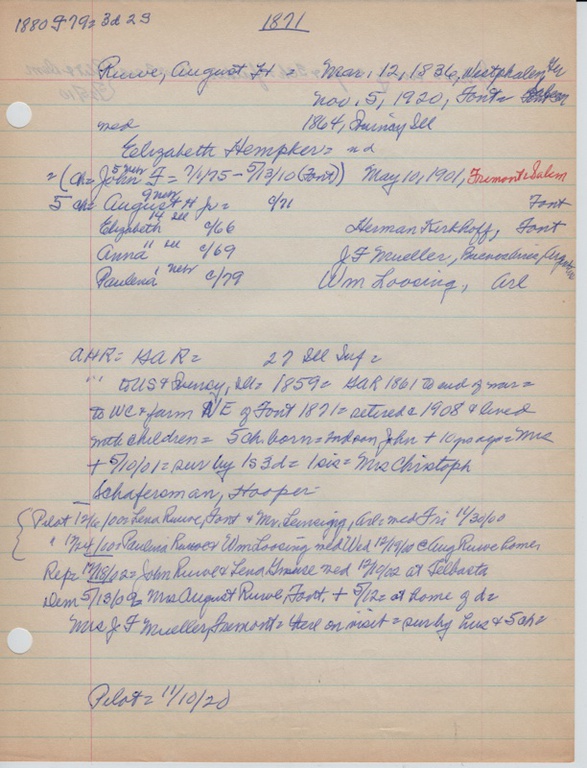 1880 F 79 = 3d 2s
1871
Ruwe, August H = Mar, 12, 1836, Westphalen, Ger
Nov. 5, 1920, Font =
med 1864, Quincy Ill
Eelizabeth Hempker = nd
= (ch = John F = 7/1/75 - 5/13/10 (Font)) May 10, 1901, Fremont = Salem
5 nebr
5 ch = August H Jr = c/71 Font
9 nebr
Elizabeth c/66 Herman Kirkhoff, Font
14 Ill
Anna c/69 J F Mueller, Buenos Aires, Argentina
" Ill
Paulena c/79 Wm Loosing, Arl
" nebr
AHR = GAR = 27 Ill Inf =
"" to US & Quincy, Ill = 1859 = GAR 1861 to end of war =
to WC & farm NE of Font 1871 = retired c 1908 & lived
with children = 5 ch. born = John + 10 yrs ago = Mrs
+ 5/10/01 = sur by 1s 3d = 1 sis = Mrs Christoph
Schafersman, Hooper
Pilot 12/ /00 = Lena Ruwe, Font & Mr. Lensigng, Arl = med Fri 11/30/00
" 12/24/00 = Paulena Ruwe & Wm Loosing med Wed 12/19/00 @ Aug Ruwe home
Rep = 12/18/02 = John Ruwe & Lena med 12/10/02 at Telbasta
Dem 5/13/0 = Mrs August Ruwe, Font. + 5/12 = at home of d =
Mrs J F Mueller, Fremont = Here on visit = sur by hus & 5 ch =
Pilot = 11/10/20